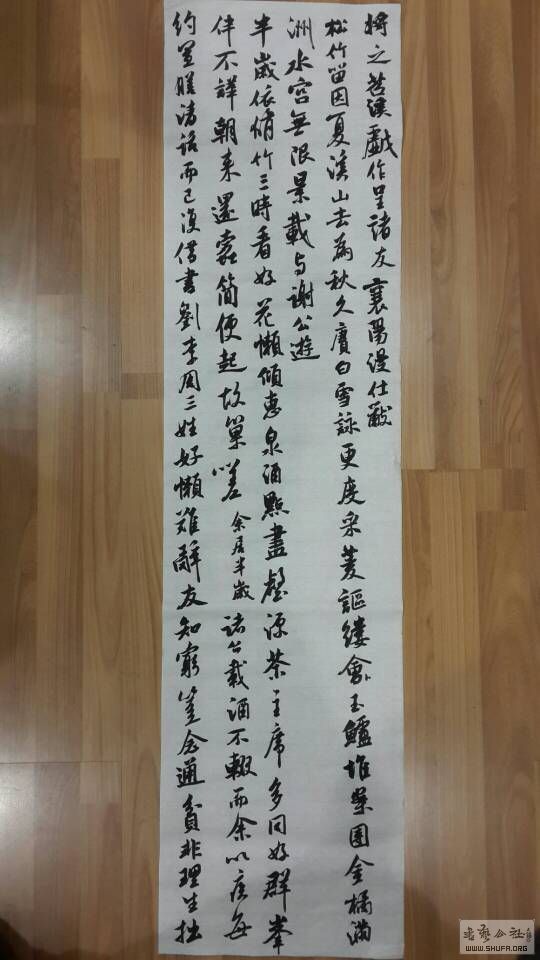 將之苕溪戲作呈諸友襄陽漫仕黻
松竹留因夏溪山去為秋久賡白雪詠更度采菱謳縷會玉鱸堆案團金橘滿
洲水宮無限景載与謝公遊
半歲依修竹三時看好花懶傾惠泉酒點盡壑源茶主席多同好群峯
伴不譁朝來還蠹簡便起故巢嗟 余居半歲諸公載酒不輟而余以疾每
約置膳清話而已復借書劉李周三姓好懶難辭友知窮豈念通貧非理生拙
WWW.SHUFA.ORG